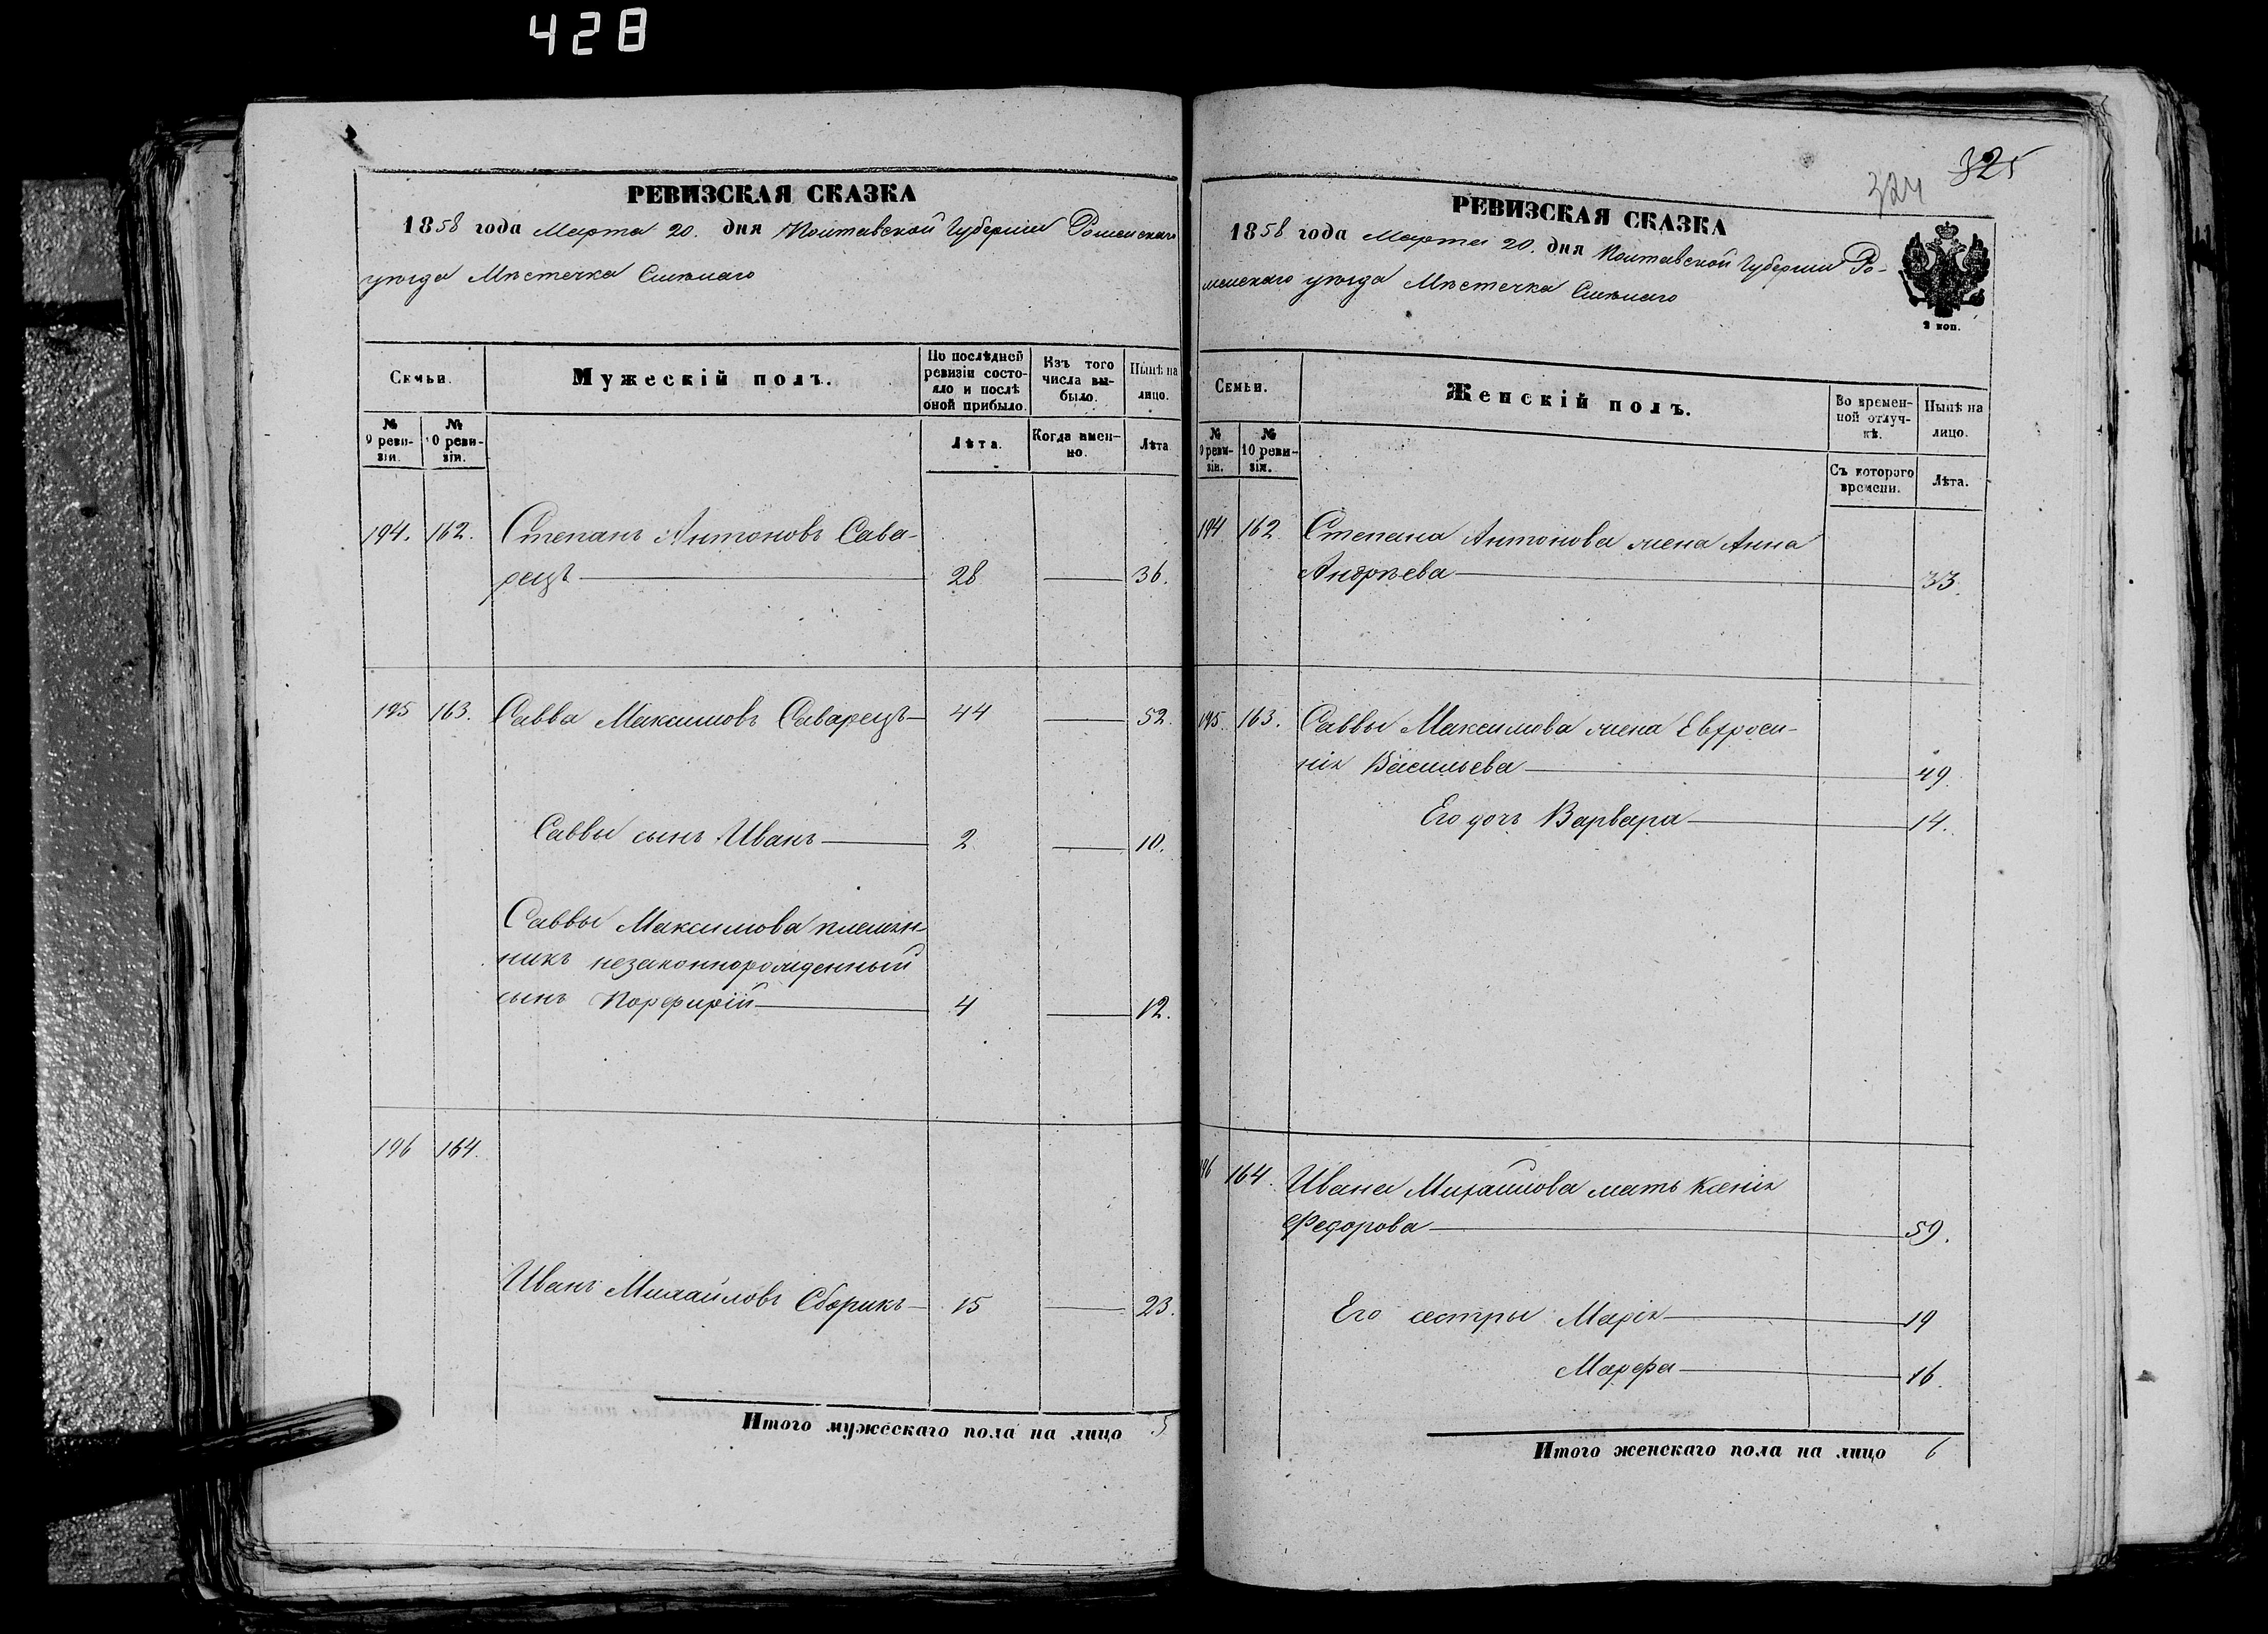 428
РЕВИЗСКАЯ СКАЗКА
1858 года Марта 20. дня Полтавской Губерніи Роменскаго
уѣзда Мѣстечка Смѣлаго
Семьи.
Мужескій полъ.
По послѣдней ревизіи состояло и послѣ оной прибыло.
Изъ того числа выбыло.
Нынѣ на лицо.
№ 9 ревизіи.
№ 10 ревизіи.
Лѣта.
Когда именно.
Лѣта
194. 162. Степанъ Антоновъ Сава-
рецъ 28 36.
195 163. Савва Максимовъ Саварецъ 44 52.
Саввы сынъ Иванъ 2 10.
Саввы Максимова племян-
никъ незаконнорожденный
сынъ Порфирій 4 12.
196 164.
Иванъ Михайловъ Сборикъ 15 23.
Итого мужескаго пола на лицо 5
324 325
РЕВИЗСКАЯ СКАЗКА
1858 года Марта 20. дня Полтавской Губерніи Ро-
менскаго уѣзда Мѣстечка Смѣлаго
2 коп.
Семьи.
Женскій полъ.
Во временной отлучкѣ.
Нынѣ на лицо.
№ 9 ревизіи.
№ 10 ревизіи.
Съ котораго времени.
Лѣта.
194 162 Степана Антонова жена Анна
Андрѣева 33.
195. 163. Саввы Максимова жена Евфроси-
нія Васильева 49.
Его дочь Варвара 14.
196 164. Ивана Михайлова мать Ксенія
Федорова 59.
Его сестры Марія 19
Марфа 16.
Итого женскаго пола на лицо 6